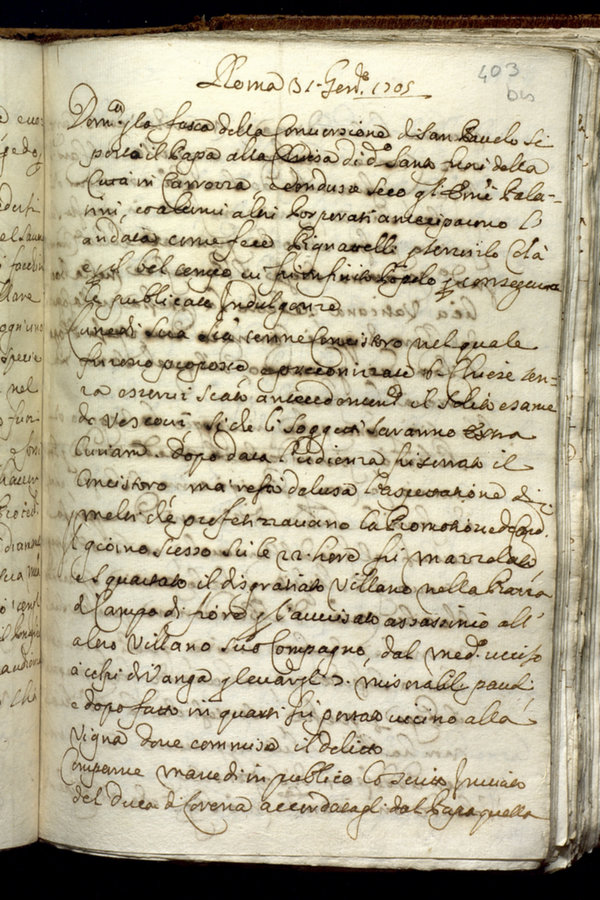 403
bis
Roma 31 Gen.º 1705
Dom.ca p la festa della Conversione di San Pauolo si
portò il Papa alla Chiesa di d.º Santo fuori della
Città in Carrozza e condusse seco gl'Emi Pala-
tini, et alcuni altri Porporati anteciparono l'
andata come fece Pignatelli p servirlo colà
e nel bel tempo vi fu infinito Popolo p conseguire
le publicate Indulgenze
Lunedì Sua Stà tenne Concistoro nel quale
furono proposte e preconizzate Chiese sen-
za esservi stato antecedentem.te il solito esame
de Vescovi si che li soggetti saranno extra
Curiam. dopo data l'udienza fu serrato il
Concistoro ma restò delusa l'aspettazione di
molti che profetizzavano la Promotione de Card.
Il giorno stesso su le 22 hore fu mazzolato
e squartato il disgratiato Villano nella Piazza
di Campo di fiore p l'accusato assassinio all'
altro Villano suo Compagno, dal med.º ucciso
à colpi di Vanga p levargli 3 miserabili paoli
e dopo fatto in quarti fu portato vicino alla
Vigna dove commise il delitto
Comparve Martedì in publico lo Inviato
del Duca di Lorena accordatagli dal Papa quella